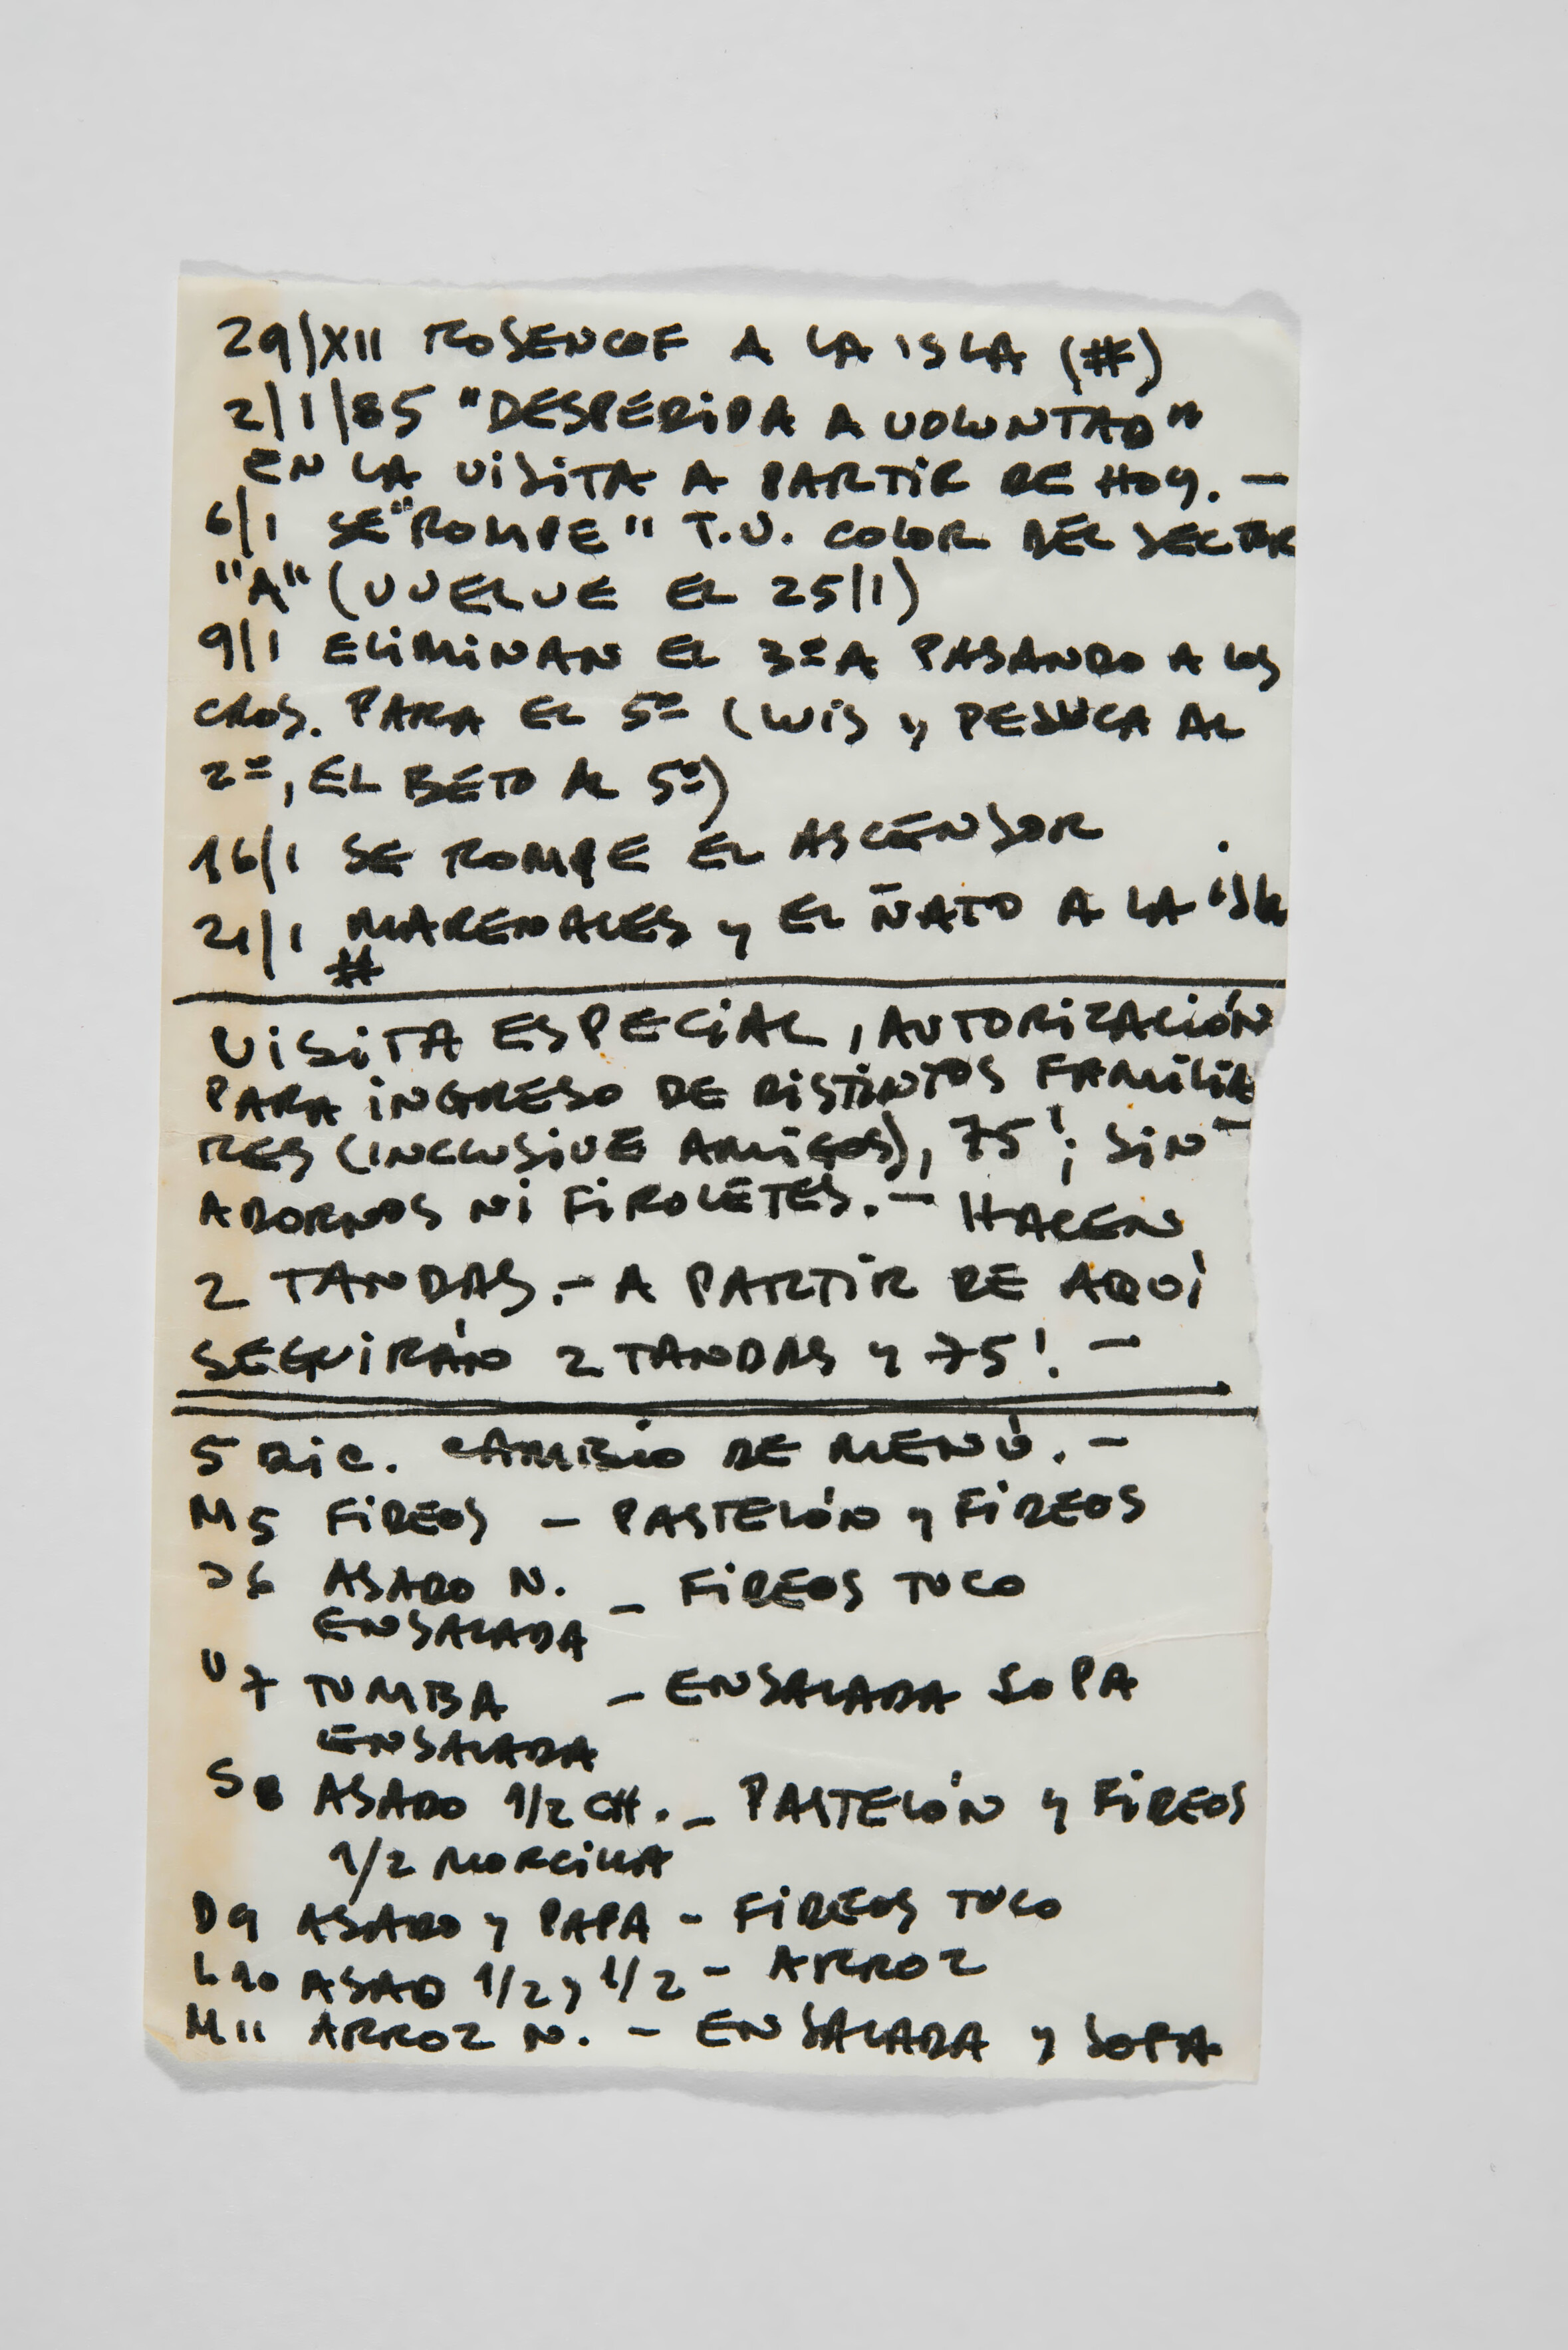 29/XII ROSENCOF A LA ISLA (#)
2/1/85 "DESPEDIDA A VOLUNTAD"
EN LA VISITA A PARTIR DE HOY. —
6/1 SE "ROMPE" T.V. COLOR DEL SECTOR
"A" (VUELVE EL 25/1)
9/1 ELIMINAN EL 3º A PASANDO A LOS
CROS. PARA EL 5º (LUIS Y PESUCA AL
2º, EL BETO AL 5º)
16/1 SE ROMPE EL ASCENSOR
21/1 MARENALES Y EL ÑATO A LA ISLA
#
VISITA ESPECIAL, AUTORIZACIÓN
PARA INGRESO DE DISTINTOS FAMILIA
RES (INCLUSIVE AMIGOS), 75'; SIN
ADORNOS NI FIROLETES. — HACEN
2 TANDAS. — A PARTIR DE AQUÍ
SEGUIRÁN 2 TANDAS Y 75'. —
5 DIC. CAMBIO DE MENÚ. —
M5 FIDEOS — PASTELÓN Y FIDEOS
J6 ASADO N. — FIDEOS TUCO
ENSALADA
V7 TUMBA — ENSALADA SOPA
ENSALADA
S8 ASADO 1/2 CH. — PASTELÓN Y FIDEOS
1/2 MORCILLA
D9 ASADO Y PAPA — FIDEOS TUCO
L10 ASAO 1/2 Y 1/2 — ARROZ
M11 ARROZ N. — ENSALADA Y SOPA